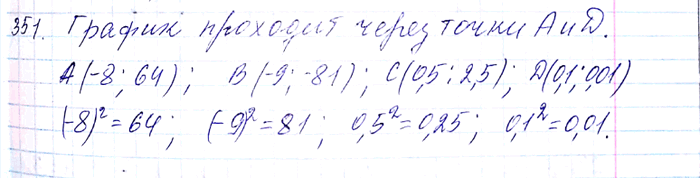 351. График проходит через точки А и D.
А (-8; 64); В (-9; -81); С(0,5; 2,5); D(0,1; 0,01)
(-8)² = 64; (-9)² = 81; 0,5² = 0,25; 0,1² = 0,01.